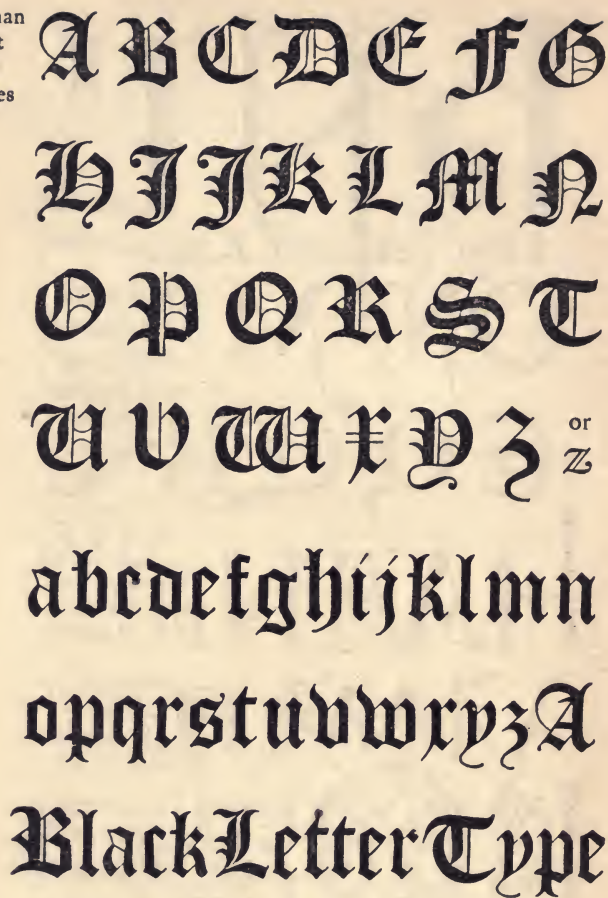 A B C D E F G
H I J K L M N
O P Q R S T
U V W X Y Z or Z
abcdefghijklmn
opqrstuvwxyzA
BlackLetterType